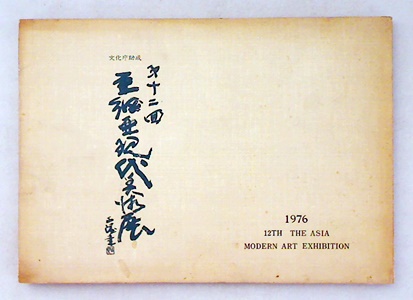 文化庁助成
第十二回
亜細亜現代美術展
1976
12TH THE ASIA
MODERN ART EXHIBITION